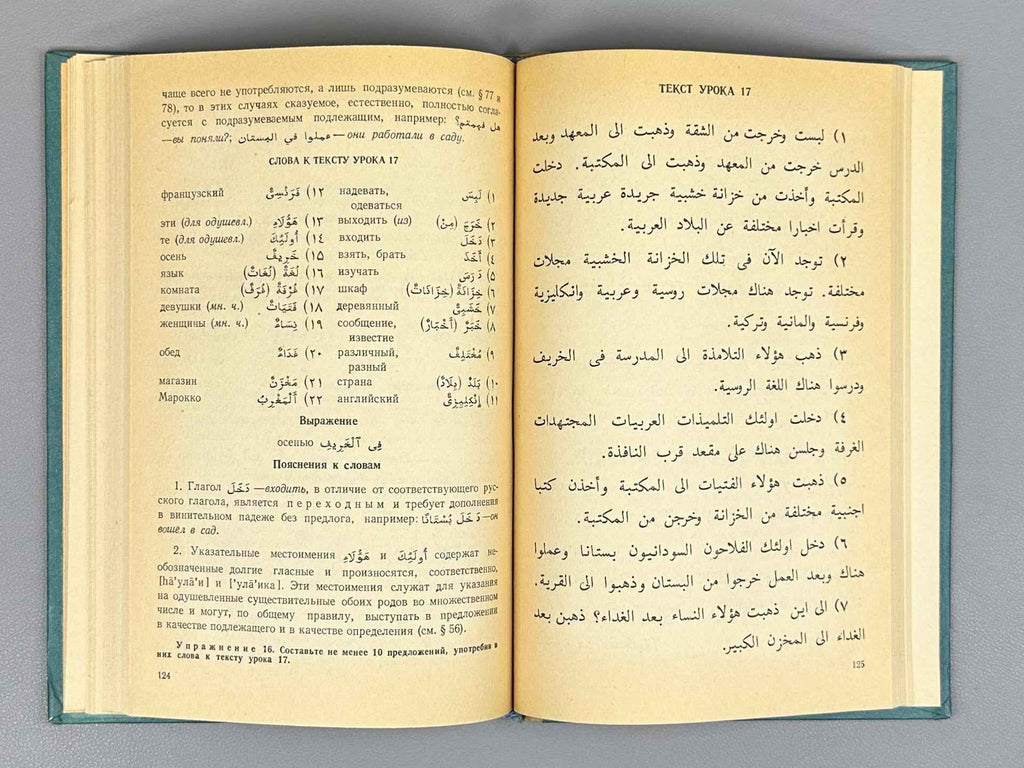 чаще всего не употребляются, а лишь подразумеваются (см. § 77 и
78), то в этих случаях сказуемое, естественно, полностью согла-
суется с подразумеваемым подлежащим, например: هل فهمتم؟
—вы поняли?; عملوا في البستان—они работали в саду.
СЛОВА К ТЕКСТУ УРОКА 17
١) لَبِسَ надевать,
одеваться
٢) خَرَجَ (مِنْ) выходить (из)
٣) دَخَلَ входить
٤) أَخَذَ взять, брать
٥) دَرَسَ изучать
٦) خِزَانَةٌ (خِزَانَاتٌ) шкаф
٧) خَشَبِيٌّ деревянный
٨) خَبَرٌ (أَخْبَارٌ) сообщение,
известие
٩) مُخْتَلِفٌ различный,
разный
١٠) بَلَدٌ (بِلَادٌ) страна
١١) إِنْكِلِيزِيٌّ английский
١٢) فَرَنْسِيٌّ французский
١٣) هٰؤُلَاءِ эти (для одушевл.)
١٤) أُولٰئِكَ те (для одушевл.)
١٥) خَرِيفٌ осень
١٦) لُغَةٌ (لُغَاتٌ) язык
١٧) غُرْفَةٌ (غُرَفٌ) комната
١٨) فَتَيَاتٌ девушки (мн. ч.)
١٩) نِسَاءٌ женщины (мн. ч.)
٢٠) غَدَاءٌ обед
٢١) مَخْزَنٌ магазин
٢٢) اَلْمَغْرِبُ Марокко
Выражение
осенью فِى ٱلْخَرِيفِ
Пояснения к словам
1. Глагол دَخَلَ —входить, в отличие от соответствующего рус-
ского глагола, является переходным и требует дополнения
в винительном падеже без предлога, например: دَخَلَ بُسْتَانًا—он
вошёл в сад.
2. Указательные местоимения هٰؤُلَاءِ и أُولٰئِكَ содержат не-
обозначенные долгие гласные и произносятся, соответственно,
[hā'ulā'и] и ['улā'ика]. Эти местоимения служат для указания
на одушевленные существительные обоих родов во множественном
числе и могут, по общему правилу, выступать в предложении
в качестве подлежащего и в качестве определения (см. § 56).
Упражнение 16. Составьте не менее 10 предложений, употребив в
них слова к тексту урока 17.
124
ТЕКСТ УРОКА 17
١) لبست وخرجت من الشقة وذهبت الى المعهد وبعد
الدرس خرجت من المعهد وذهبت الى المكتبة. دخلت
المكتبة وأخذت من خزانة خشبية جريدة عربية جديدة
وقرأت اخبارا مختلفة عن البلاد العربية.
٢) توجد الآن فى تلك الخزانة الخشبية مجلات
مختلفة. توجد هناك مجلات روسية وعربية وانكليزية
وفرنسية والمانية وتركية.
٣) ذهب هؤلاء التلامذة الى المدرسة فى الخريف
ودرسوا هناك اللغة الروسية.
٤) دخلت اولئك التلميذات العربيات المجتهدات
الغرفة وجلسن هناك على مقعد قرب النافذة.
٥) ذهبت هؤلاء الفتيات الى المكتبة وأخذن كتبا
اجنبية مختلفة من الخزانة وخرجن من المكتبة.
٦) دخل اولئك الفلاحون السودانيون بستانا وعملوا
هناك وبعد العمل خرجوا من البستان وذهبوا الى القرية.
٧) الى اين ذهبت هؤلاء النساء بعد الغداء؟ ذهبن بعد
الغداء الى المخزن الكبير.
125